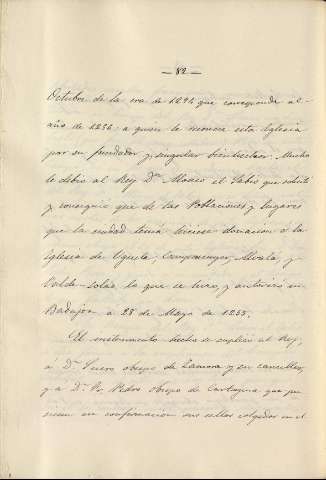 — 82 —
Octubre de la era de 1294 que corresponde al
año de 1256: a quien le merece esta Iglesia
por su fundador y singular bienhechor. Mucho
le debio al Rey Dn. Alonso el Sabio que solicitó
y consiguio que de las Poblaciones y lugares
que la ciudad tenia hiciese donacion a la
iglesia de Uguela, Campomayor, Alvala, y
Valde-Solas lo que se hizo, y autorizó en
Badajoz a 28 de Mayo de 1255.
El instrumento hecho se suplicó al Rey,
á D. Suero obispo de Zamora y su canciller,
y a D. Pedro obispo de Cartagena que pu
siesen en confirmacion sus sellos colgados en el